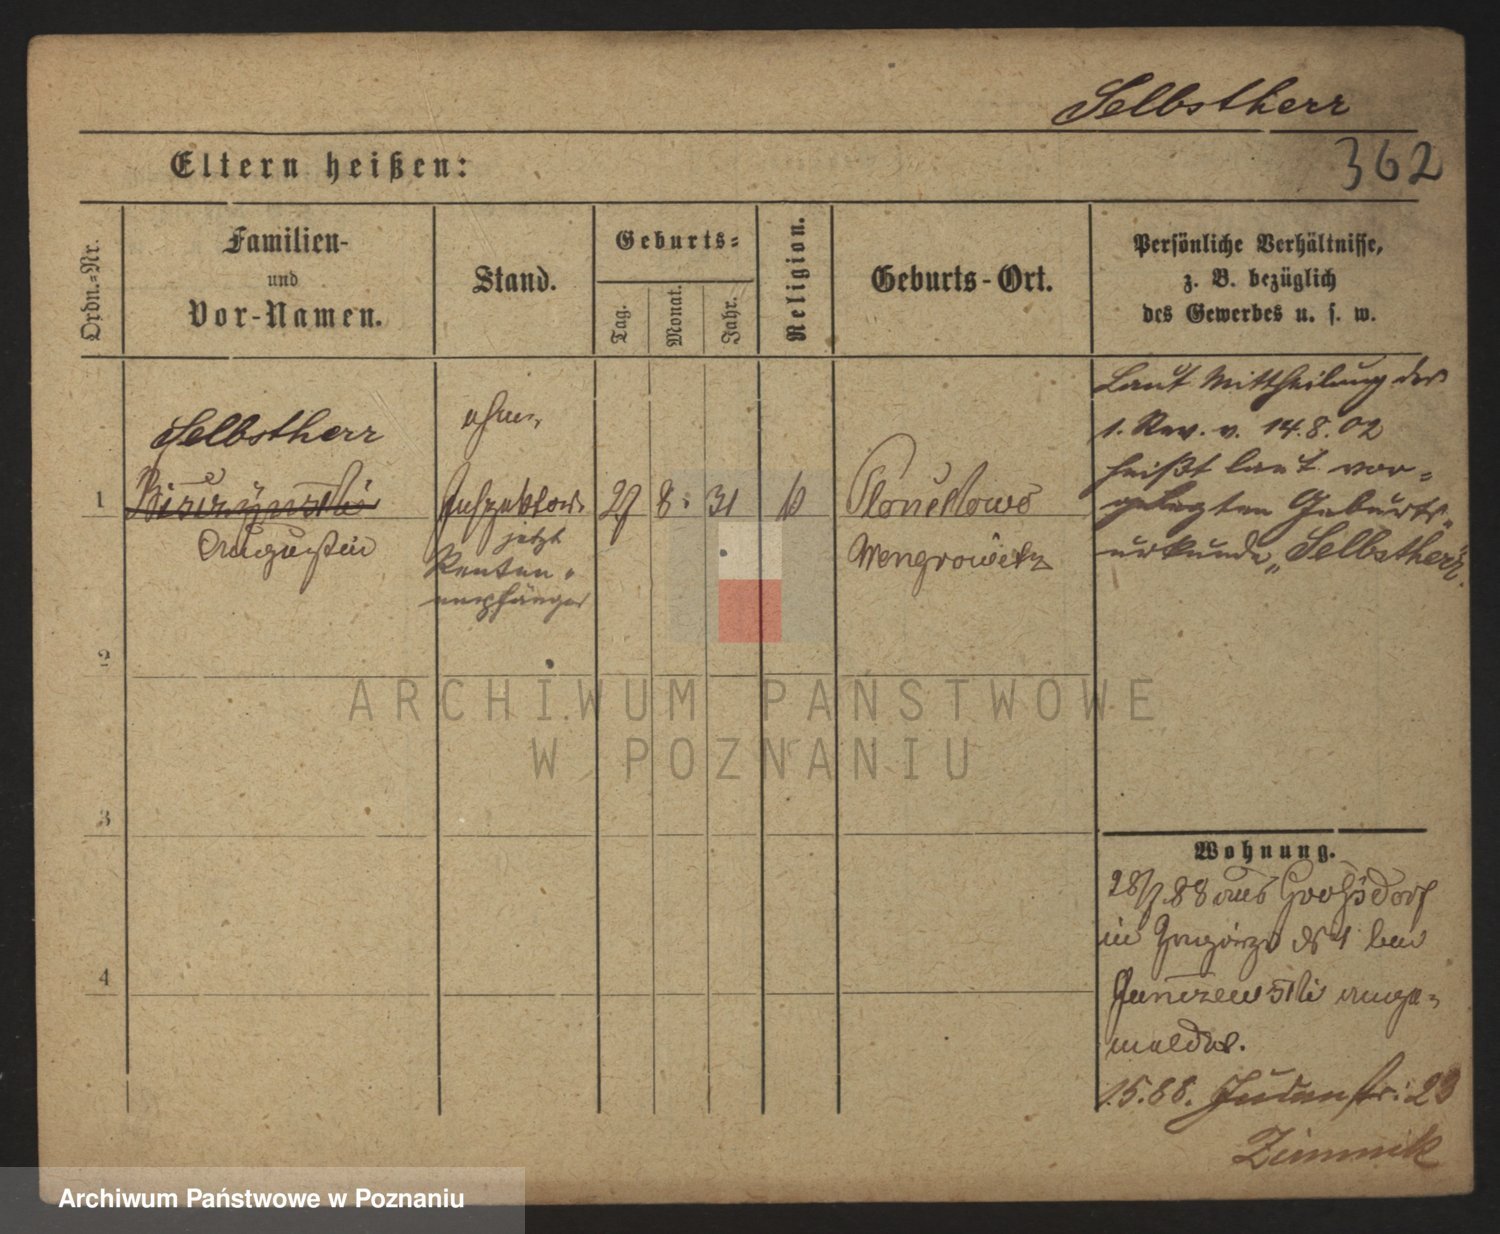 Selbstherr
362
Eltern heißen:
Ordn.-Nr.
Familien-
und
Vor-Namen.
Stand.
Geburts-
Tag.
Monat.
Jahr.
Religion.
Geburts-Ort.
Persönliche Verhältnisse,
z. B. bezüglich
des Gewerbes u. s. w.
Selbstherr
1
Augustin
ehm.
Inspektor
jetzt
Renten-
empfänger
27
8.
31
Wengrowitz
Laut Mittheilung des
1. Rev. v. 14.8.02
heißt laut vor-
gelegten Geburts-
urkunde „Selbstherr.
2
3
4
Wohnung.
28/7. 88 aus
in Zagórze № 1 bei
ange-
meldet.
1.5.88. Judenstr: 23
Zimnik
ARCHIWUM PAŃSTWOWE
W POZNANIU
Archiwum Państwowe w Poznaniu